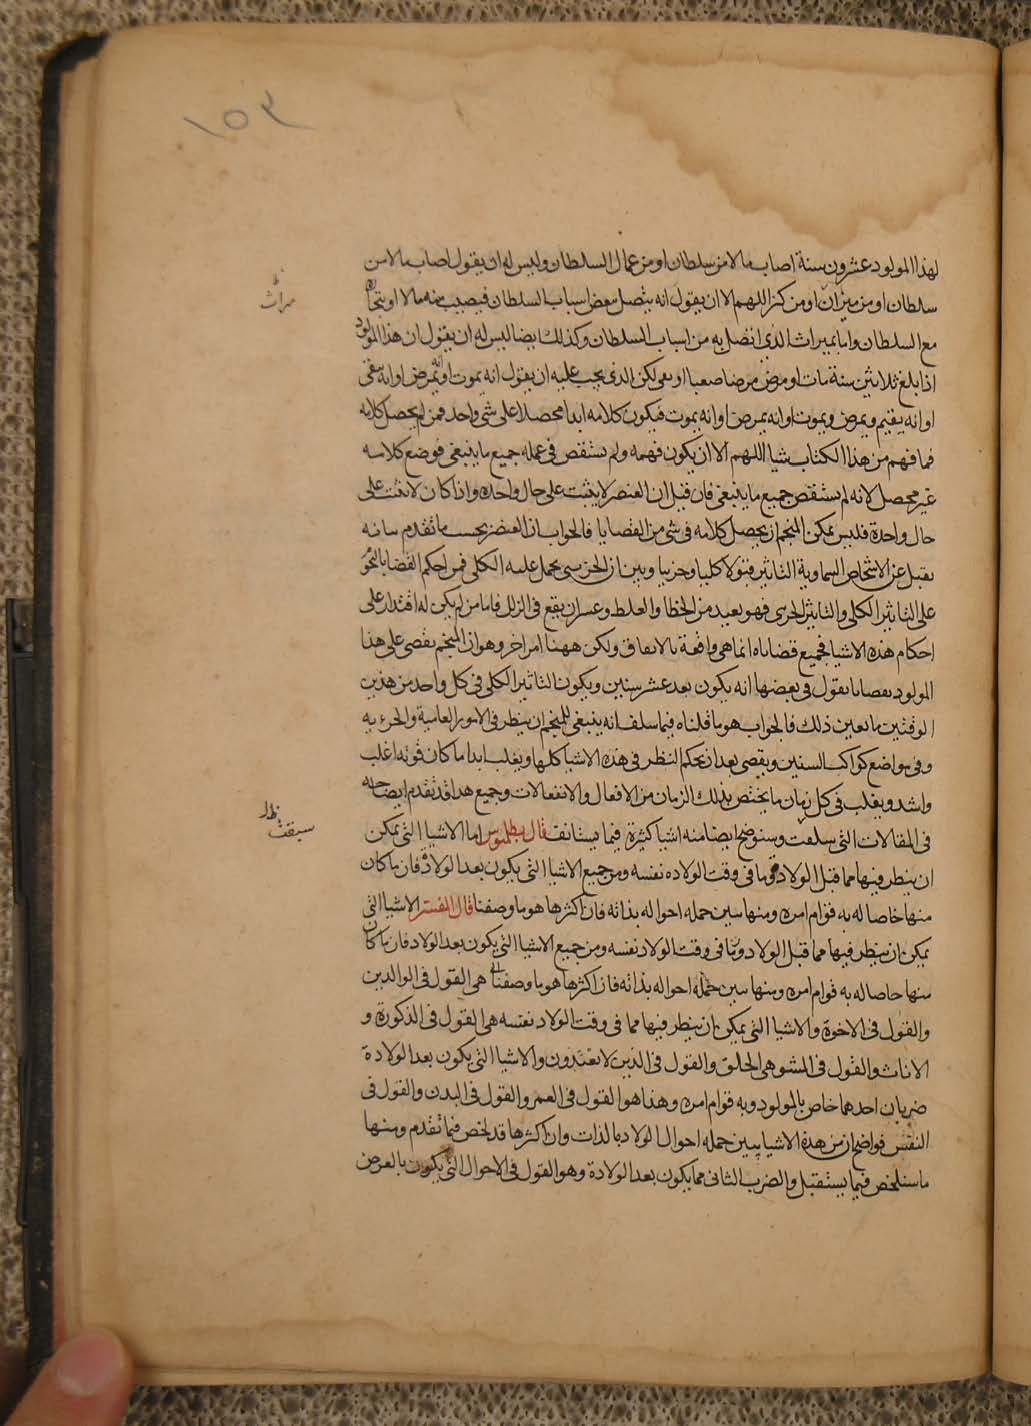 ١٥٣
لهذا المولود عشرون سنة اصاب مالا من سلطان او من عمال السلطان وليس له ان يقول اصاب مالا من
سلطان او من ميزان او من كنز اللهم الا ان يقول انه يتصل ببعض اسباب السلطان فيصيب منه مالا او
ميراث
مع السلطان واما بميراث الذي اتصل به من اسباب السلطان وكذلك ايضا ليس له ان يقول ان هذا المولود
اذا بلغ ثلاثين سنة مات او مرض مرضا صعبا او بقي لكن الذي يجب عليه ان يقول انه يموت او انه يمرض او انه يبقى
او انه يقيم ويمرض ويموت او انه يمرض او انه يموت فيكون كلامه ابدا محصلا على شي واحد فمن لم يحصل كلامه
فما فهم من هذا الكتاب شيا اللهم الا ان يكون فهمه ولم يستقص في عمله جميع ما ينبغي فوضع كلامه
غير محصل لانه لم يستقص جميع ما ينبغي فان قيل ان العنصر لا يثبت على حال واحدة واذا كان لا يثبت على
حال واحدة فليس يمكن المنجم ان يحصل كلامه في شي من القضايا فالجواب ان العنصر بحسب ما تقدم بيانه
يقبل عن الاشخاص السماوية التاثير قبولا كليا وجزييا وبين ان الجزيي يحمل عليه الكلي فمن احكم القضايا
على التاثير الكلي والتاثير الجزيي فهو بعيد من الخطا والغلط وعسر ان يقع في الزلل فاما من لم يكن له اقتدار على
احكام هذه الاشيا فجميع قضاياه انما هي واقعة بالاتفاق ولكن ههنا امر اخر وهو ان المنجم يقضي على هذا
المولود بقضايا يقول في بعضها انه يكون بعد عشر سنين ويكون التاثير الكلي في كل واحد من هذين
الوقتين ما يعين ذلك فالجواب هو ما قلناه فيما سلف انه ينبغي للمنجم ان ينظر في الامور العامية والجزءية
وفي مواضع كواكب السنين ويقضي بعد ان يحكم النظر في هذه الاشيا كلها ويغلب ابدا ما كان قوته اغلب
واشد ويغلب في كل زمان ما يختص بذلك الزمان من الافعال والانفعالات وجميع هذا قد تقدم ايضاحه
في المقالات التي سلفت وسنوضح ايضا منه اشيا كثيرة فيما يستانف قال بطلميوس اما الاشيا التي يمكن
سبقت
ان ينظر فيها مما قبل الولاد فما في وقت الولاده نفسه ومن جميع الاشيا التي يكون بعد الولاد فان ما كان
منها خاصا له به قوام امره ومنها يبين جمله احواله بذاته فان اكثرها هو ما وصفنا قال المفسر الاشيا التي
يمكن ان ينظر فيها مما قبل الولاد وما في وقت الولاد نفسه ومن جميع الاشيا التي يكون بعد الولاد فان ما كان
منها خاصا له به قوام امره ومنها يبين جملة احواله بذاته فان اكثرها هو ما وصفنا هي القول في الوالدين
والقول في الاخوة والاشيا التي يمكن ان ينظر فيها مما في وقت الولاد نفسه هي القول في الذكورة و
الاناث والقول في المشوهي الخلق والقول في الذين لا يغتذون والاشيا التي يكون بعد الولادة
ضربان احدهما خاص بالمولود وبه قوام امره وهذا هو القول في العمر والقول في البدن والقول في
النفس فواضح ان من هذه الاشيا يبين جمله احوال الولاد بالذات وان اكثرها قد لخص فيما تقدم ومنها
ما سنلخص فيما يستقبل والضرب الثاني مما يكون بعد الولادة وهو القول في الاحوال التي يكون بالعرض